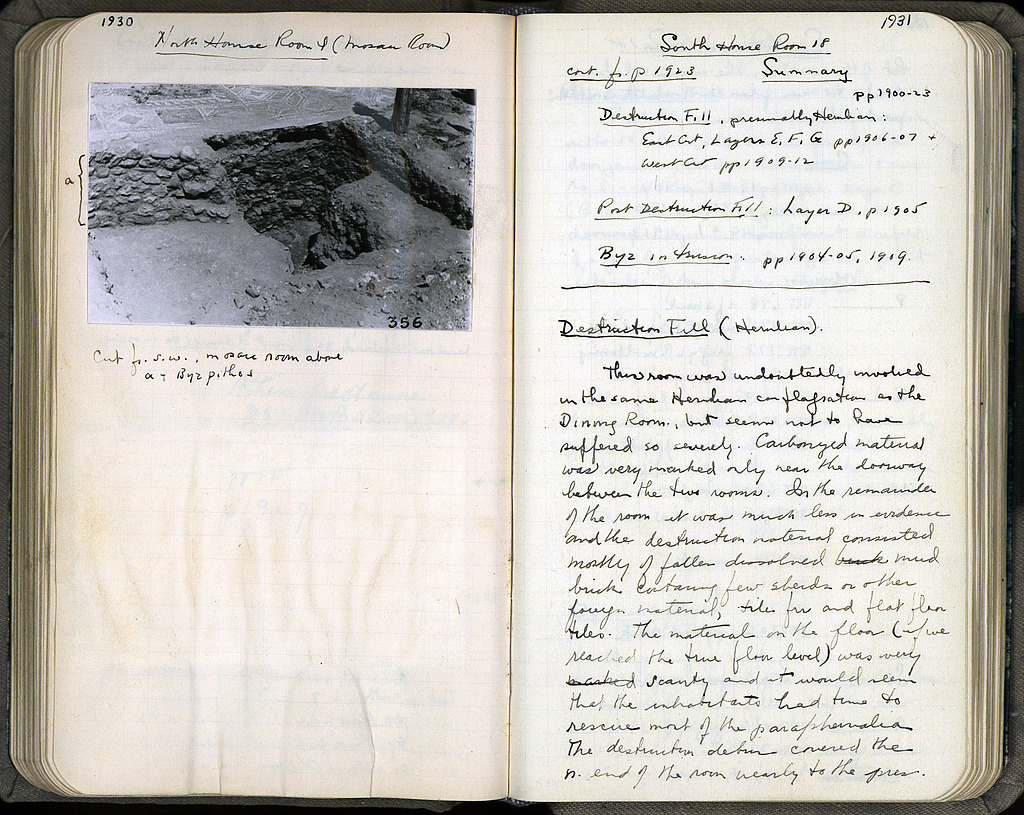 1930
North House Room 1 (Mosaic Room)
a
356
Cut fr. s.w., mosaic room above
a = Byz pithos
1931
South House Room 18
cont. fr. p 1923 Summary
pp 1900-23
Destruction Fill, presumably Herulian:
East Cut, Layers E, F, G pp 1906-07 +
West Cut pp 1909-12
Post Destruction Fill: Layer D, p 1905
Byz intrusion: pp 1904-05, 1909.
Destruction Fill (Herulian).
This room was undoubtedly involved
in the same Herulian conflagration as the
Dining Room, but seems not to have
suffered so severely. Carbonized material
was very marked only near the doorway
between the two rooms. In the remainder
of the room it was much less in evidence
and the destruction material consisted
mostly of fallen dissolved brick mud
brick containing few sherds or other
foreign material, tiles fr and flat floor
tiles. The material on the floor (if we
reached the true floor level) was very
marked scanty and it would seem
that the inhabitants had time to
rescue most of the paraphernalia
The destruction debris covered the
n. end of the room nearly to the pres.